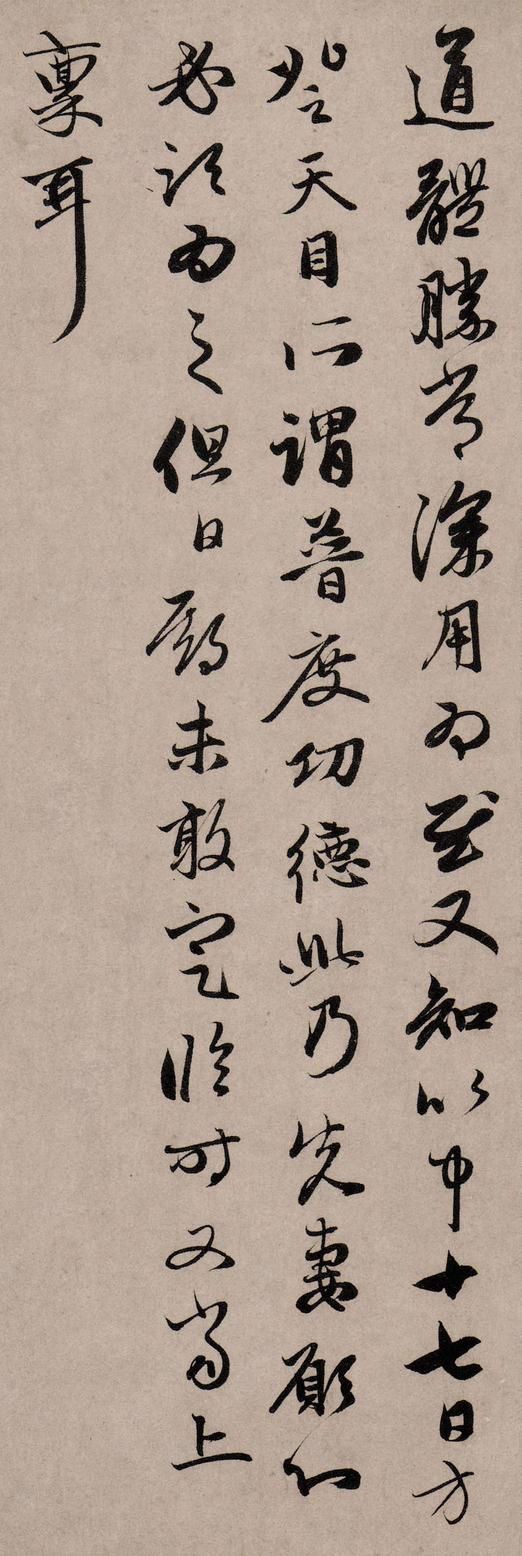 道體勝常深用為慰又知以中十七日方
登天目所謂普度功德此乃先妻願心
必須為之但日辰未敢定臨時又當上
稟耳